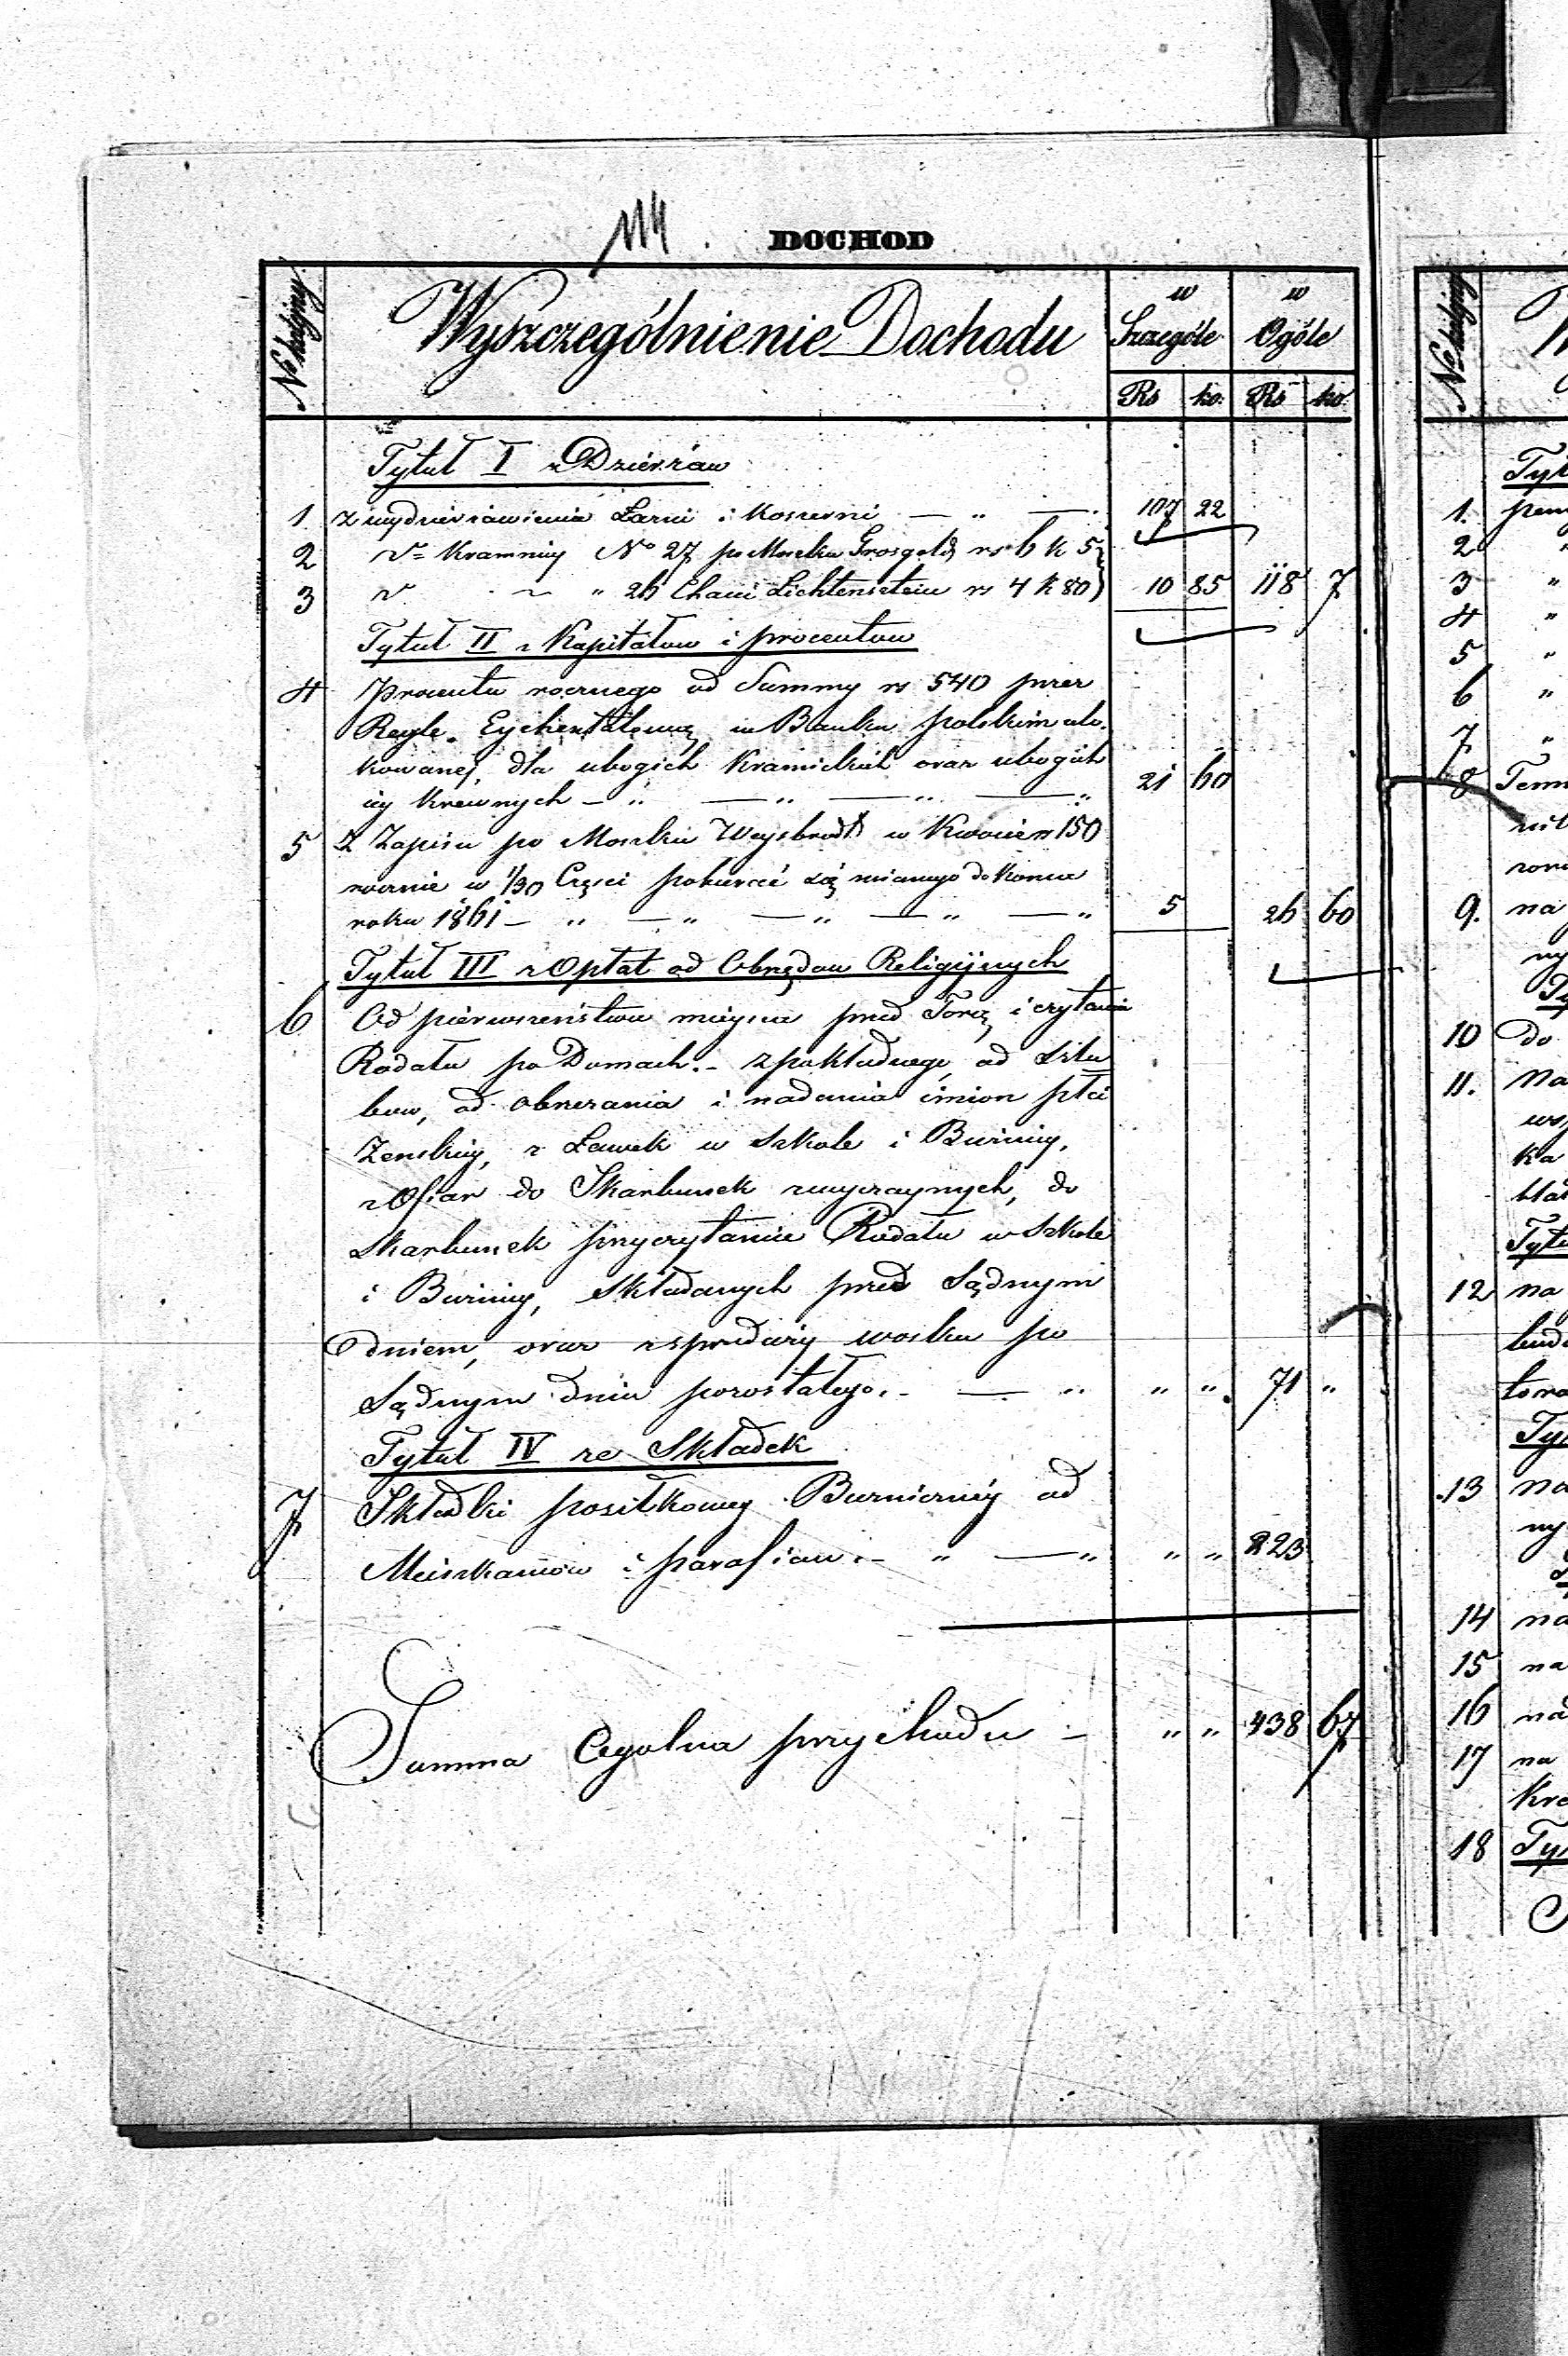 114
DOCHOD
No kolejny
Wyszczególnienie Dochodu
w Szczególe
w Ogóle
Rs ko. Rs ko.
Tytuł I z Dzierżaw
1 z wydzierżawienia Łazni i Koszerni — " — 107 22
2 z" Kramnicy No 27 po Moszku Grosgold rs 6 k 5
3 z " 26 Chaii Lichtensztein rs 4 k 80 10 85 118 7
Tytuł II z Kapitałow i procentow
4 Procentu rocznego od Summy rs 540 przez
Rayle Eychentalową w Banku polskim ulo-
kowanej, dla ubogich Kramickich oraz ubogich
iey Krewnych — " — " — " — " 21 60
5 Z Zapisu po Moszku Weysbrodt w Kwocie rs 150
rocznie w 1/30 Częsci pobierać się mianego do Konca
roku 1861 — " — " — " — " — " 5 26 60
Tytuł III z Opłat od Obrzędow Religijnych
6 Od pierwszeństwa mieysca przed Torą i czytania
Rodału po Domach.- z pokładnego, od szlu
bow, od obrzezania i nadania imion płci
Zenskiey, z Ławek w Szkole i Buznicy,
z Ofiar do Skarbonek zwyczaynych, do
Skarbonek przy czytaniu Rodału w Szkole
i Buznicy, składanych przed Sądnym
dniem, oraz z sprzedaży wosku po
Sądnym dniu pozostałego.- — " " " 71 "
Tytuł IV ze Składek
7 Składki posiłkowey Bużniczney od
Mieszkancow i parafian.- " — " " " 223
Summa Ogolna przychodu - " " 438 67
No kolejny
1.
2 "
3 "
4 "
5 "
6 "
7 "
8
9. na
10 do
11. Na
12 na
13 na
14 na
15 na
16 na
17 na
18